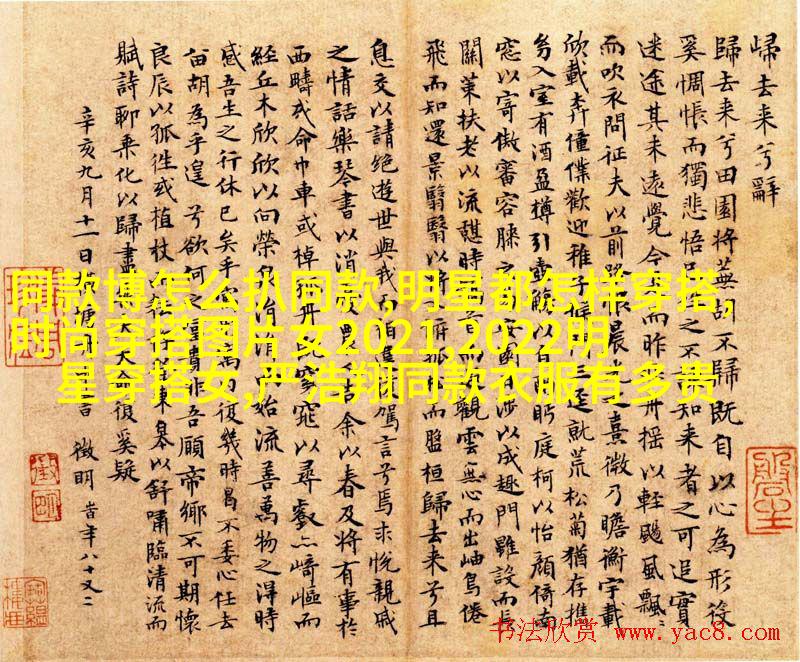 歸去来兮辭
歸去来兮田園将蕪胡不歸既自以心為形役
奚惆悵而獨悲悟之不知来者之可追實
迷途其未遠覺今而昨舟摇以輕颺風飄〻
而吹衣問征夫以前路晨熹微乃瞻衡宇載
欣載奔僮僕歡迎稚子候三逕就荒松菊猶存攜
幼入室有酒盈樽引壺觴以自眄庭柯以怡顔倚南
窓以寄傲審容膝之安涉以成趣門雖設而長
關策扶老以流憩時首而觀雲無心而出岫鳥倦
飛而知還景翳翳以将孤而盤桓歸去来兮且
息交以請絶遊世與我而駕言兮焉求悦親戚
之情話樂琴書以消農告余以春及将有事於
西疇或命巾車或棹舟窈窕以尋壑亦崎嶇而
經丘木欣欣以向榮始流善萬物之得時
感吾生之行休已矣乎復幾時曷不委心任去
留胡為乎遑兮欲何之貴非吾願帝鄉不可期懷
良辰以孤往或植杖東皋以舒嘯臨清流而
賦詩聊乘化以歸盡天命復奚疑
辛亥九月十一日塘書 徵明 時年八十又二
同款博怎么扒同款,明星都怎样穿搭,
时尚穿搭图片女2021,2022明
星穿搭女,严浩翔同款衣服有多贵
书法欣赏 www.yac8.com